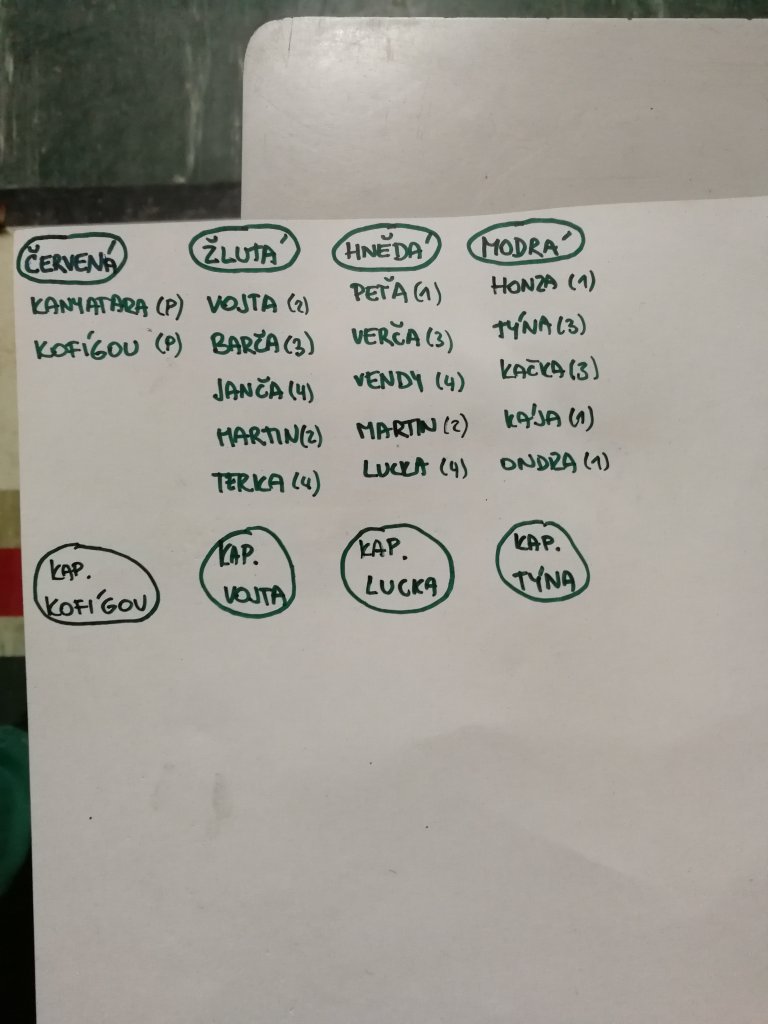 ČERVENÁ
KANYATARA (P)
KOFÍGOU (P)
KAP.
KOFÍGOU
ŽLUTÁ
VOJTA (2)
BARČA (3)
JANČA (4)
MARTIN (2)
TERKA (4)
KAP.
VOJTA
HNĚDÁ
PEŤA (1)
VERČA (3)
VENDY (4)
MARTIN (2)
LUCKA (4)
KAP.
LUCKA
MODRÁ
HONZA (1)
TÝNA (3)
KAČKA (3)
KÁJA (1)
ONDRA (1)
KAP.
TÝNA